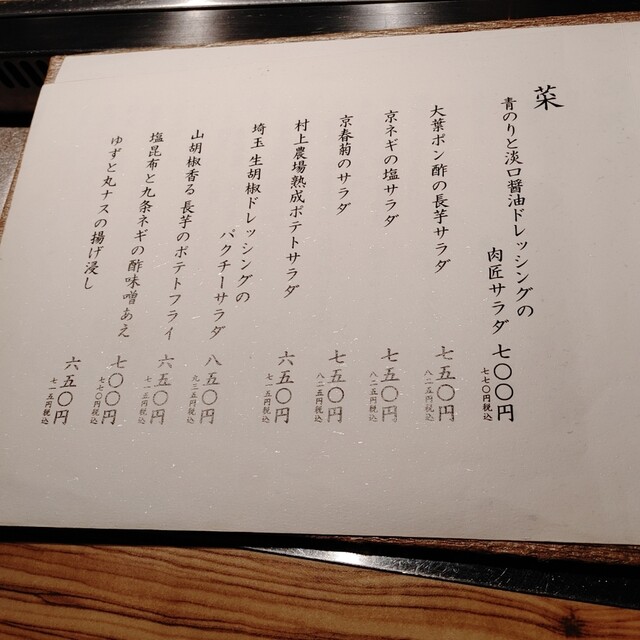 菜
青のりと淡口醤油ドレッシングの
肉匠サラダ 七〇〇円
七七〇円税込
大葉ポン酢の長芋サラダ 七五〇円
八二五円税込
京ネギの塩サラダ 七五〇円
八二五円税込
京春菊のサラダ 七五〇円
八二五円税込
村上農場熟成ポテトサラダ 六五〇円
七一五円税込
埼玉生胡椒ドレッシングの
パクチーサラダ 八五〇円
九三五円税込
山胡椒香る長芋のポテトフライ 六五〇円
七一五円税込
塩昆布と九条ネギの酢味噌あえ 七〇〇円
七七〇円税込
ゆずと丸ナスの揚げ浸し 六五〇円
七一五円税込